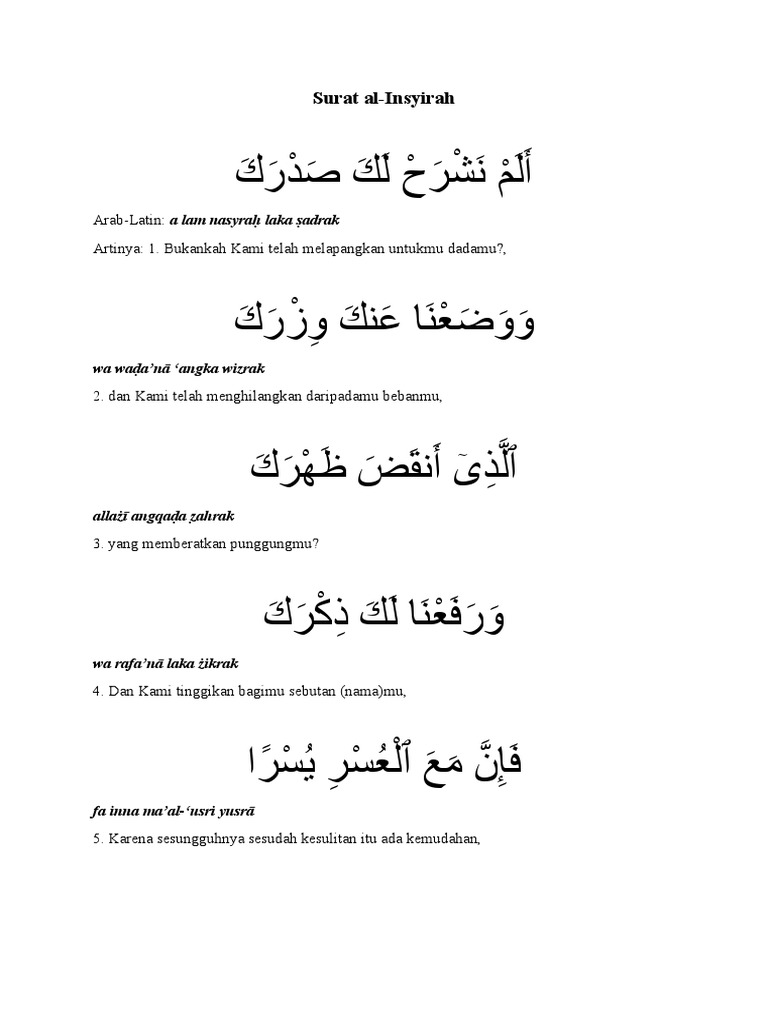 Surat al-Insyirah
أَلَمْ نَشْرَحْ لَكَ صَدْرَكَ
Arab-Latin: a lam nasyraḥ laka ṣadrak
Artinya: 1. Bukankah Kami telah melapangkan untukmu dadamu?,
وَوَضَعْنَا عَنكَ وِزْرَكَ
wa waḍa’nā ‘angka wizrak
2. dan Kami telah menghilangkan daripadamu bebanmu,
ٱلَّذِىٓ أَنقَضَ ظَهْرَكَ
allażī angqaḍa ẓahrak
3. yang memberatkan punggungmu?
وَرَفَعْنَا لَكَ ذِكْرَكَ
wa rafa’nā laka żikrak
4. Dan Kami tinggikan bagimu sebutan (nama)mu,
فَإِنَّ مَعَ ٱلْعُسْرِ يُسْرًا
fa inna ma’al-‘usri yusrā
5. Karena sesungguhnya sesudah kesulitan itu ada kemudahan,